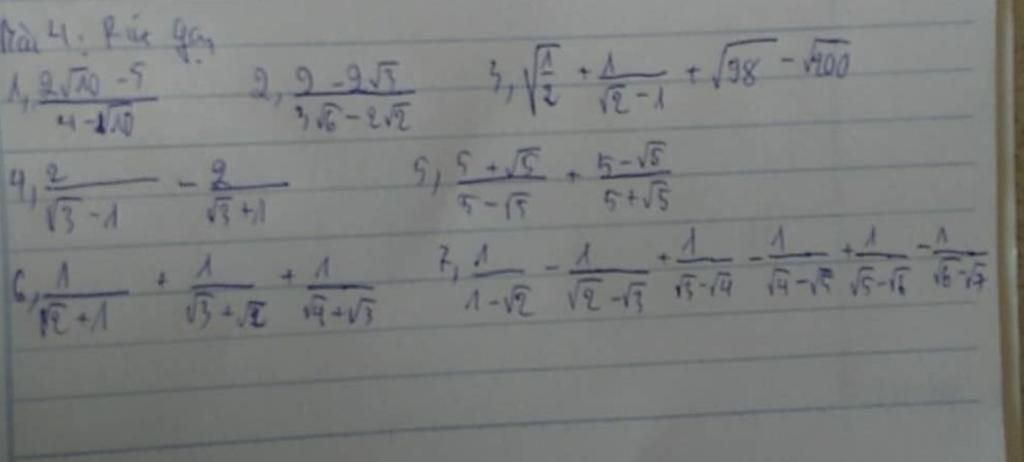 Bài 4: Rút gọn
1, (2√10 - 5)/(4 - √10) 2, (9 - 2√3)/(3√6 - 2√2) 3, √(1/2) + 1/(√2 - 1) + √98 - √200
4, 2/(√3 - 1) - 2/(√3 + 1) 5, (5 + √5)/(5 - √5) + (5 - √5)/(5 + √5)
6, 1/(√2 + 1) + 1/(√3 + √2) + 1/(√4 + √3) 7, 1/(1 - √2) - 1/(√2 - √3) + 1/(√3 - √4) - 1/(√4 - √5) + 1/(√5 - √6) - 1/(√6 - √7)